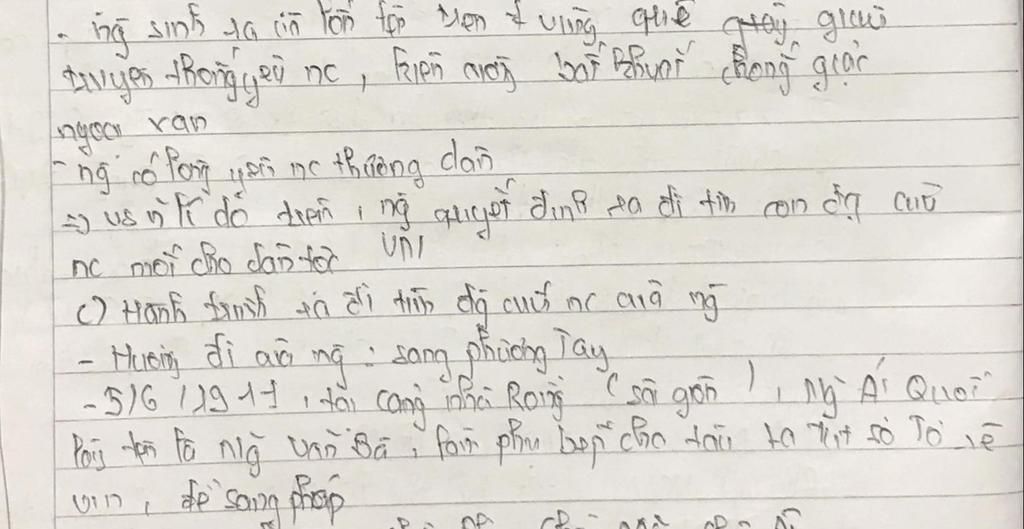 - ng sinh ra lớn lên trên 1 vùng quê giàu
truyền thống yêu nc, kiên cường bất khuất chống giặc
ngoại xâm
- ng có lòng yêu nc thương dân
=> vs n lí do trên, ng quyết định ra đi tìm con đg cứu
nc mới cho dân tộc VN
c) Hành trình ra đi tìm đg cứu nc của ng
- Hướng đi của ng: sang phương Tây
- 5/6/1911, tại cảng nhà Rồng (sài gòn), Ng Ái Quốc
lấy tên là Ng Văn Ba, làm phụ bếp cho tàu
để sang pháp